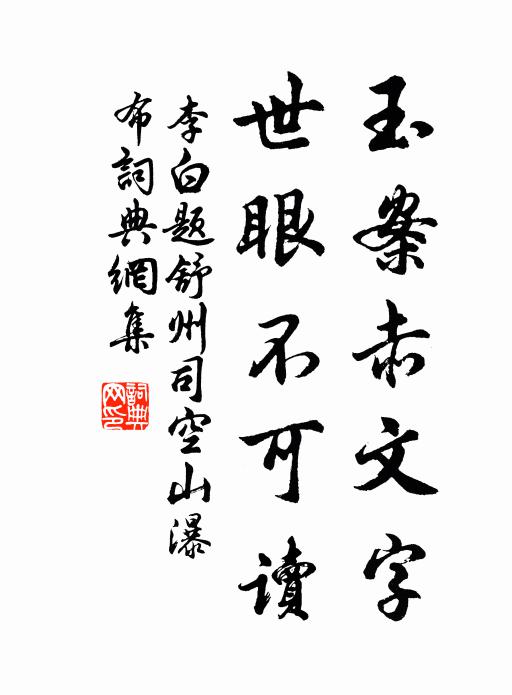 玉案赤文字
世眼不可读
李白题舒州司空山瀑
布詞典網集
詞典
网印